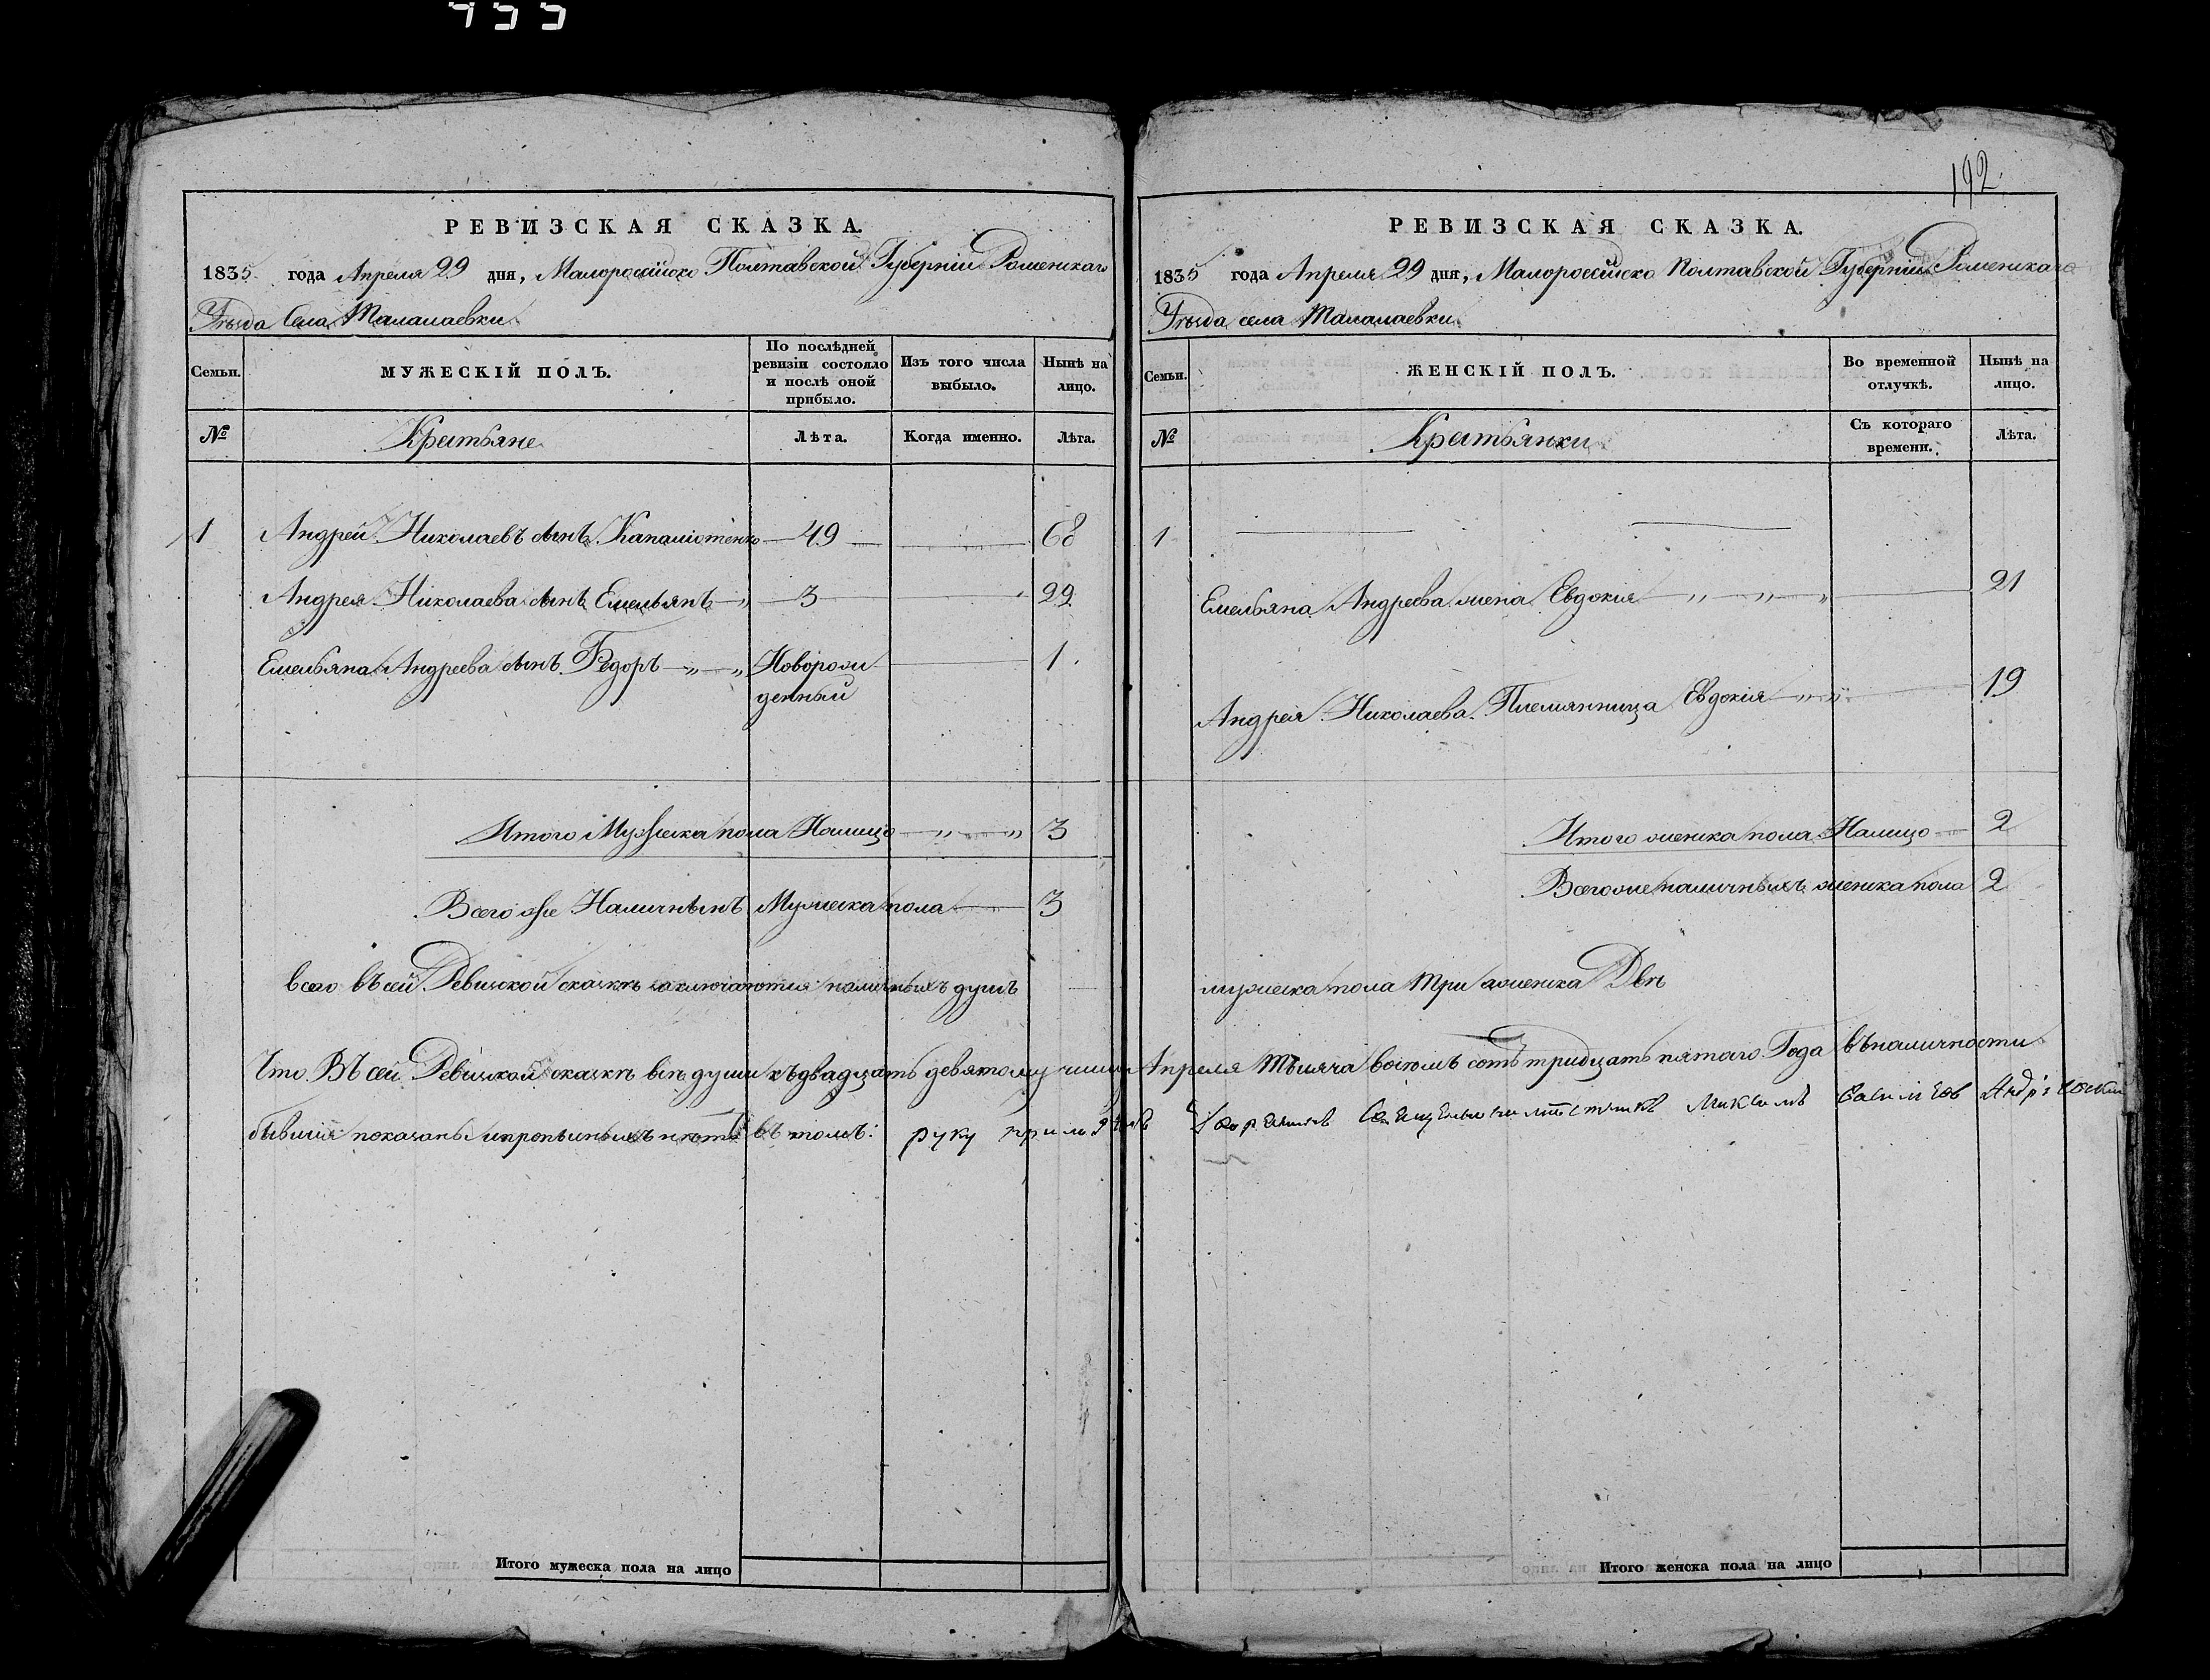 455
192.
РЕВИЗСКАЯ СКАЗКА.
1835 года Апреля 29 дня, Малоросcійско Полтавской Губерніи Роменскаго
Уѣзда Села Талалаевки
Семьи. МУЖЕСКІЙ ПОЛЪ. По послѣдней ревизіи состояло и послѣ оной прибыло. Изъ того числа выбыло. Нынѣ на лицо.
№ Крестьяне Лѣта. Когда именно. Лѣта.
1 Андрей Николаевъ сынъ 49 68
Андрея Николаева сынъ Емельянъ 3 22
Емельяна Андреева сынъ Федоръ Новорож 1.
денный
Итого Мужеска пола Налицо 3
Всего же Наличныхъ Мужеска пола 3
всего въ сей Ревиской сказкѣ заключаются наличныхъ душъ
Что Въ сей Ревиской сказкѣ всѣ души къ двадцать девятому числу
бывшія показаны и прописныхъ нѣтъ въ томъ: руку приложилъ
Итого мужеска пола на лицо
РЕВИЗСКАЯ СКАЗКА.
1835 года Апреля 29 дня, Малоросcійско Полтавской Губерніи Роменскаго
Уѣзда села Талалаевки
Семьи. ЖЕНСКІЙ ПОЛЪ. Во временной отлучкѣ. Нынѣ на лицо.
№ Крестьянки Съ котораго времени. Лѣта.
1
Емельяна Андреева жена Евдокия 21
Андрея Николаева Племянница Евдокія 19
Итого женска пола Налицо 2
Всего же наличныхъ женска пола 2
мужеска пола три а женска Двѣ
Апреля тысяча восемь сотъ тридцать пятого Года въ наличности
Максимъ
Итого женска пола на лицо